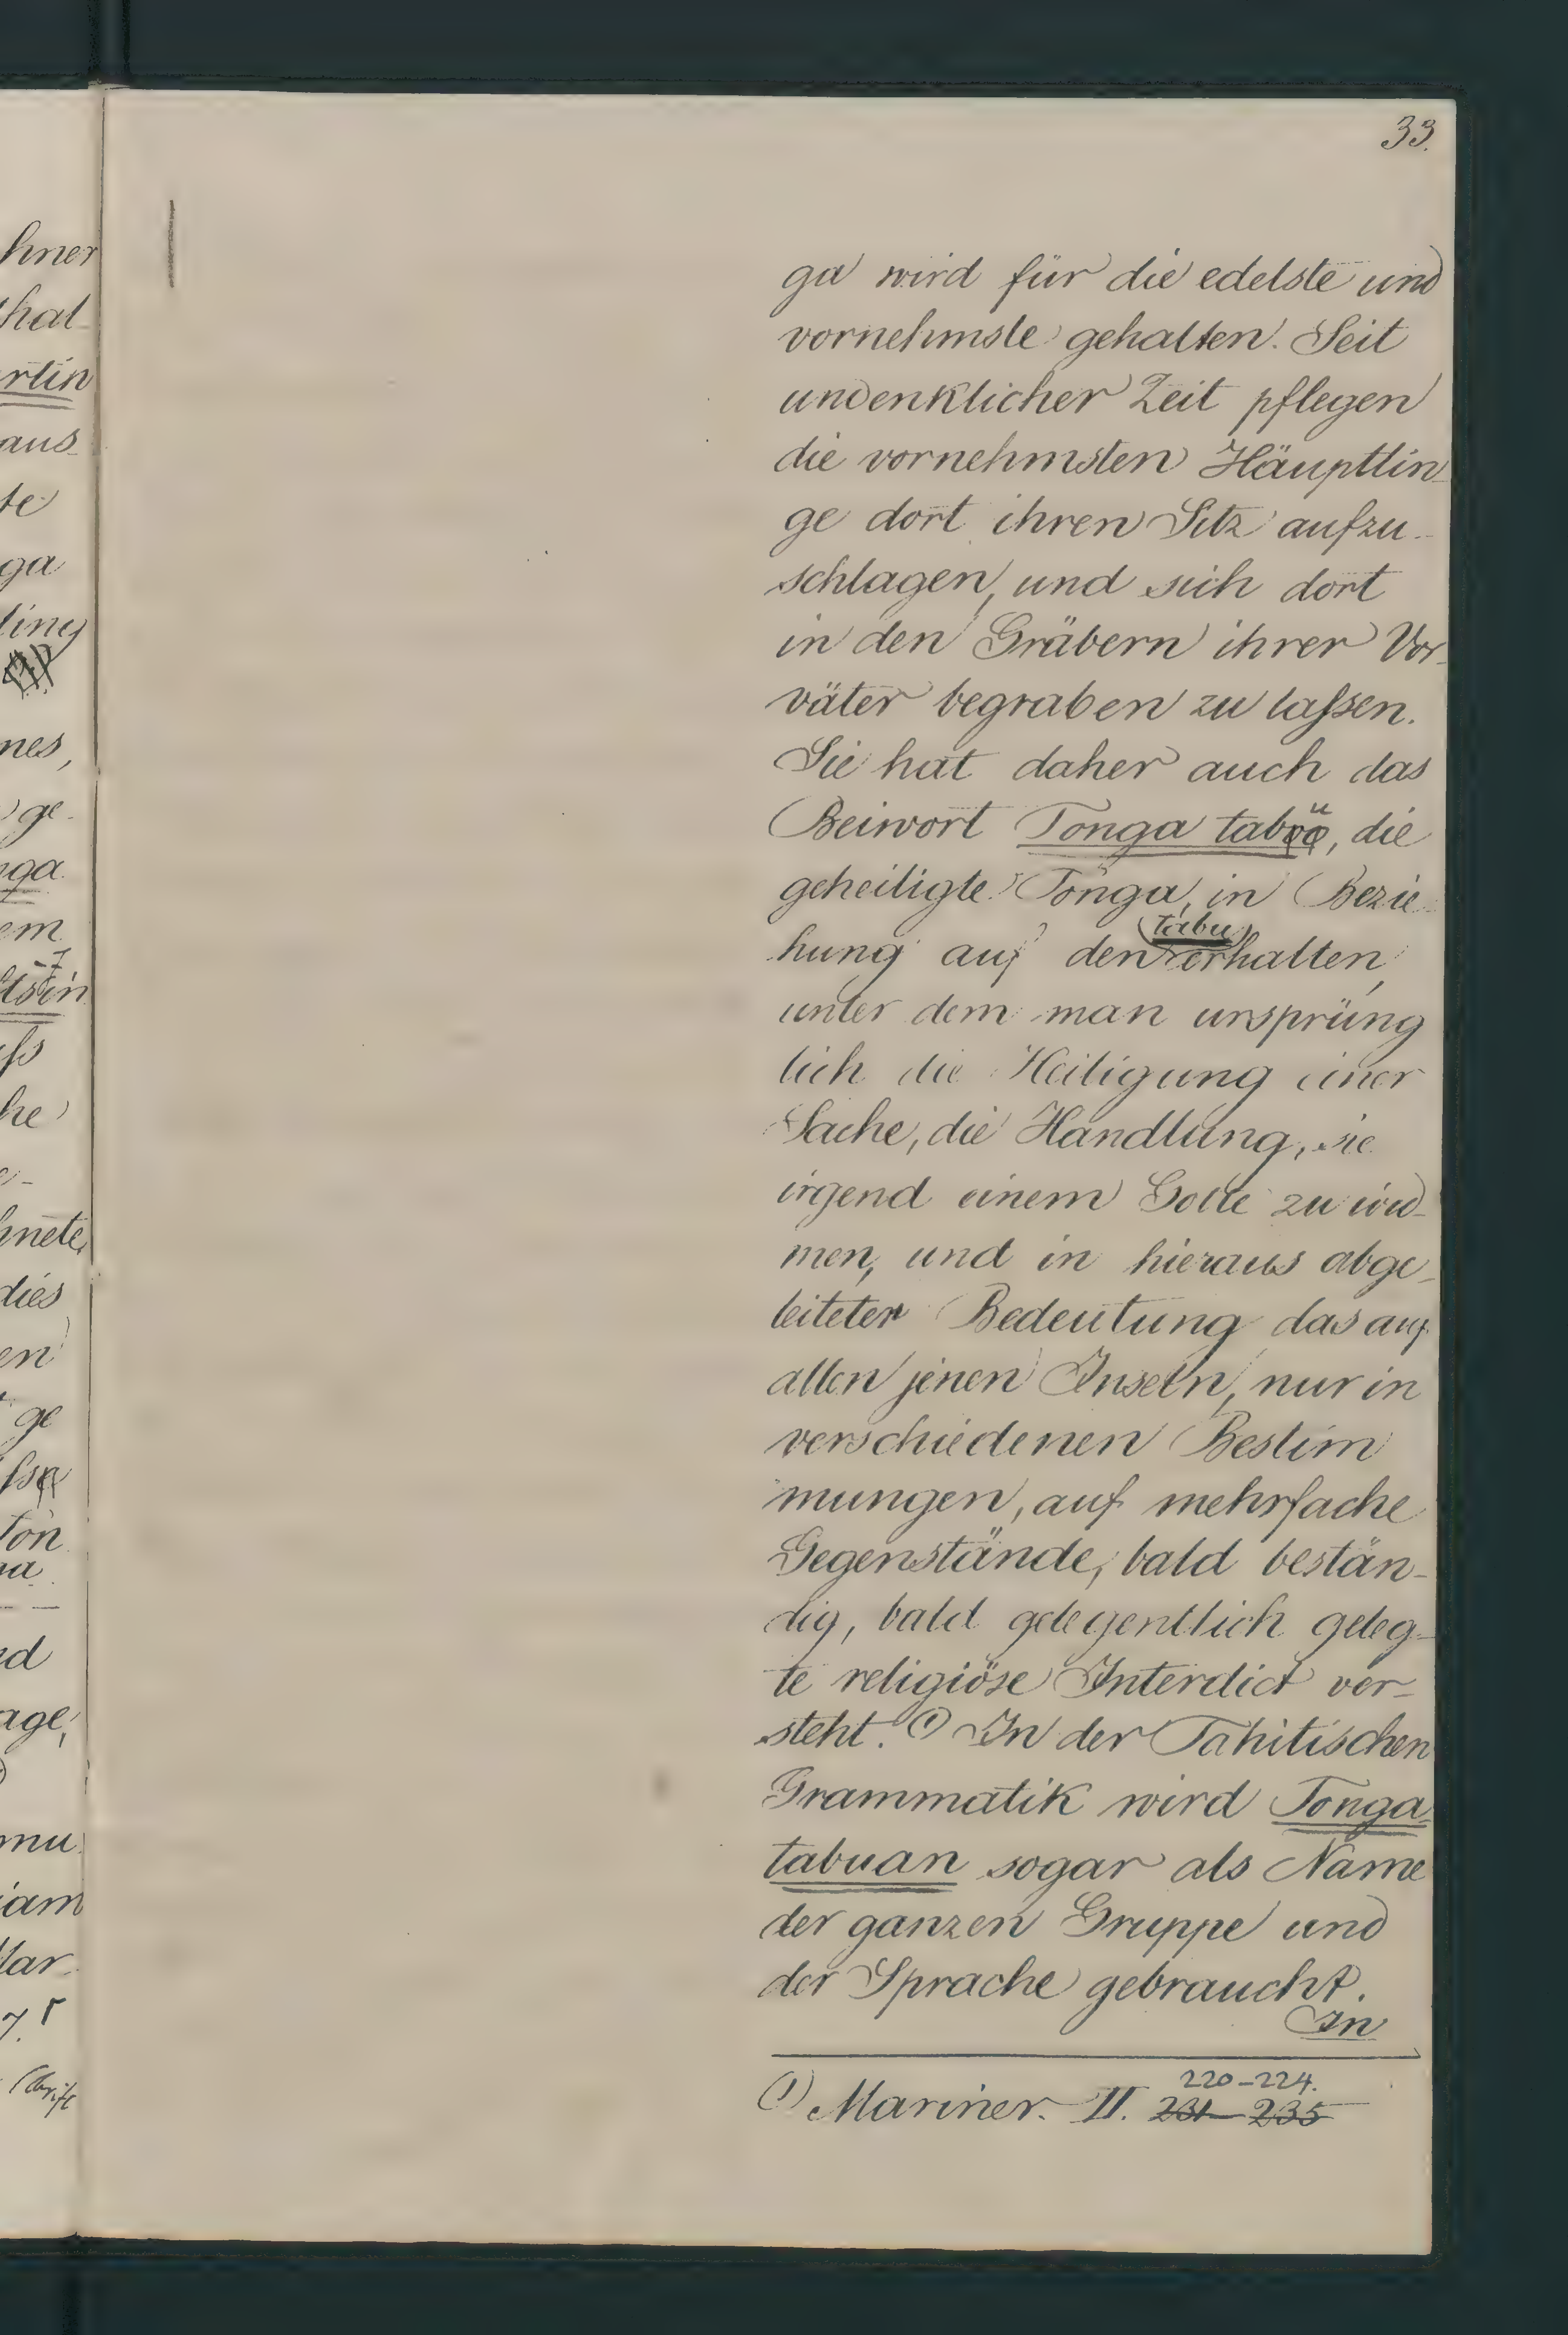 33.
hner
hal
rtin
aus
te
ga
ling
nes,
ge
ga
em
he
hnete,
dies
en
ge
Ton
na
nd
age,
mu
iam
Mar
7.
ga wird für die edelste und
vornehmste gehalten. Seit
undenklicher Zeit pflegen
die vornehmsten Häuptlin-
ge dort ihren Sitz aufzu-
schlagen, und sich dort
in den Gräbern ihrer Vor-
väter begraben zu laſsen.
Sie hat daher auch das
Beiwort Tonga taboo, die
u
geheiligte Tonga, in Bezie-
tabu
hung auf den erhalten,
unter dem man ursprüng
lich die Heiligung einer
Sache, die Handlung, sie
irgend einem Gotte zu wid-
men, und in hieraus abge-
leiteter Bedeutung das auf
allen jenen Inseln, nur in
verschiedenen Bestim
mungen, auf mehrfache
Gegenstände, bald bestän-
dig, bald gelegentlich geleg-
te religiöse Interdict ver-
steht. (1) In der Tahitischen
Grammatik wird Tonga-
tabuan sogar als Name
der ganzen Gruppe und
der Sprache gebraucht.
In
220-224.
(1) Mariner. II. 231-235